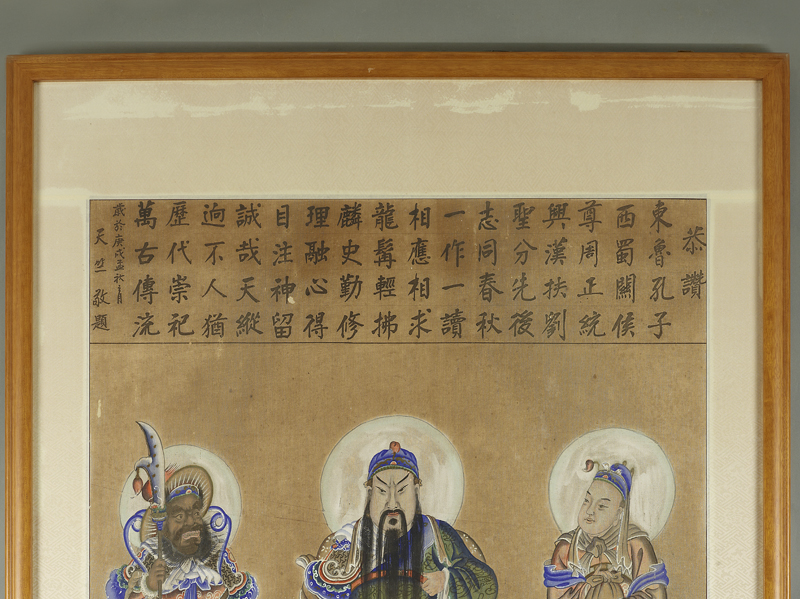 恭讚
東魯孔子
西蜀關侯
尊周正統
興漢扶劉
聖分先後
志同春秋
一作一讀
相應相求
龍髯輕拂
麟史勤修
理融心得
目注神留
誠哉天縱
逈不人猶
歷代崇祀
萬古傳流
歲於庚戌孟秋月
天竺敬題